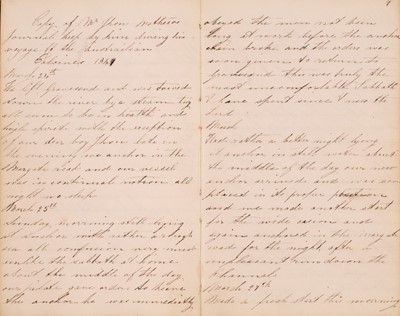 Copy of Mr Jhon Mathews
Journal kept by him during his
voyage to the Australian
Colonies 1849
March 24th
We left Gravesend and was towed
down the river by a steam tug
all seem to be in health and
high spirits with the exception
of our dear boy Jhon late in
the evening we anchor in the
Margate Road and our vessel
was in continual motion all
night no sleep
March 25th
Sunday morning still lying
at anchor with rather a high
sea all confusion very much
unlike the sabbath at home
about the middle of the day
our pilate gave orders to heave
the anchor he was immediatly
7
obeyed the men not been
long at work before the anchor
chain broke and the orders was
soon given to return to
Gravesend this was truly the
most uncomfortable Sabbath
I have spent since I was the
Lord
March
Had rather a better night lying
at anchor in still water about
the middle of the day our new
anchor arrived and was soon
placed in its proper
and we made another start
for the wide ocean and
again anchored in the Margate
road for the night after a
unpleasant run down the
Channel
March 27th
Made a fresh start this morning